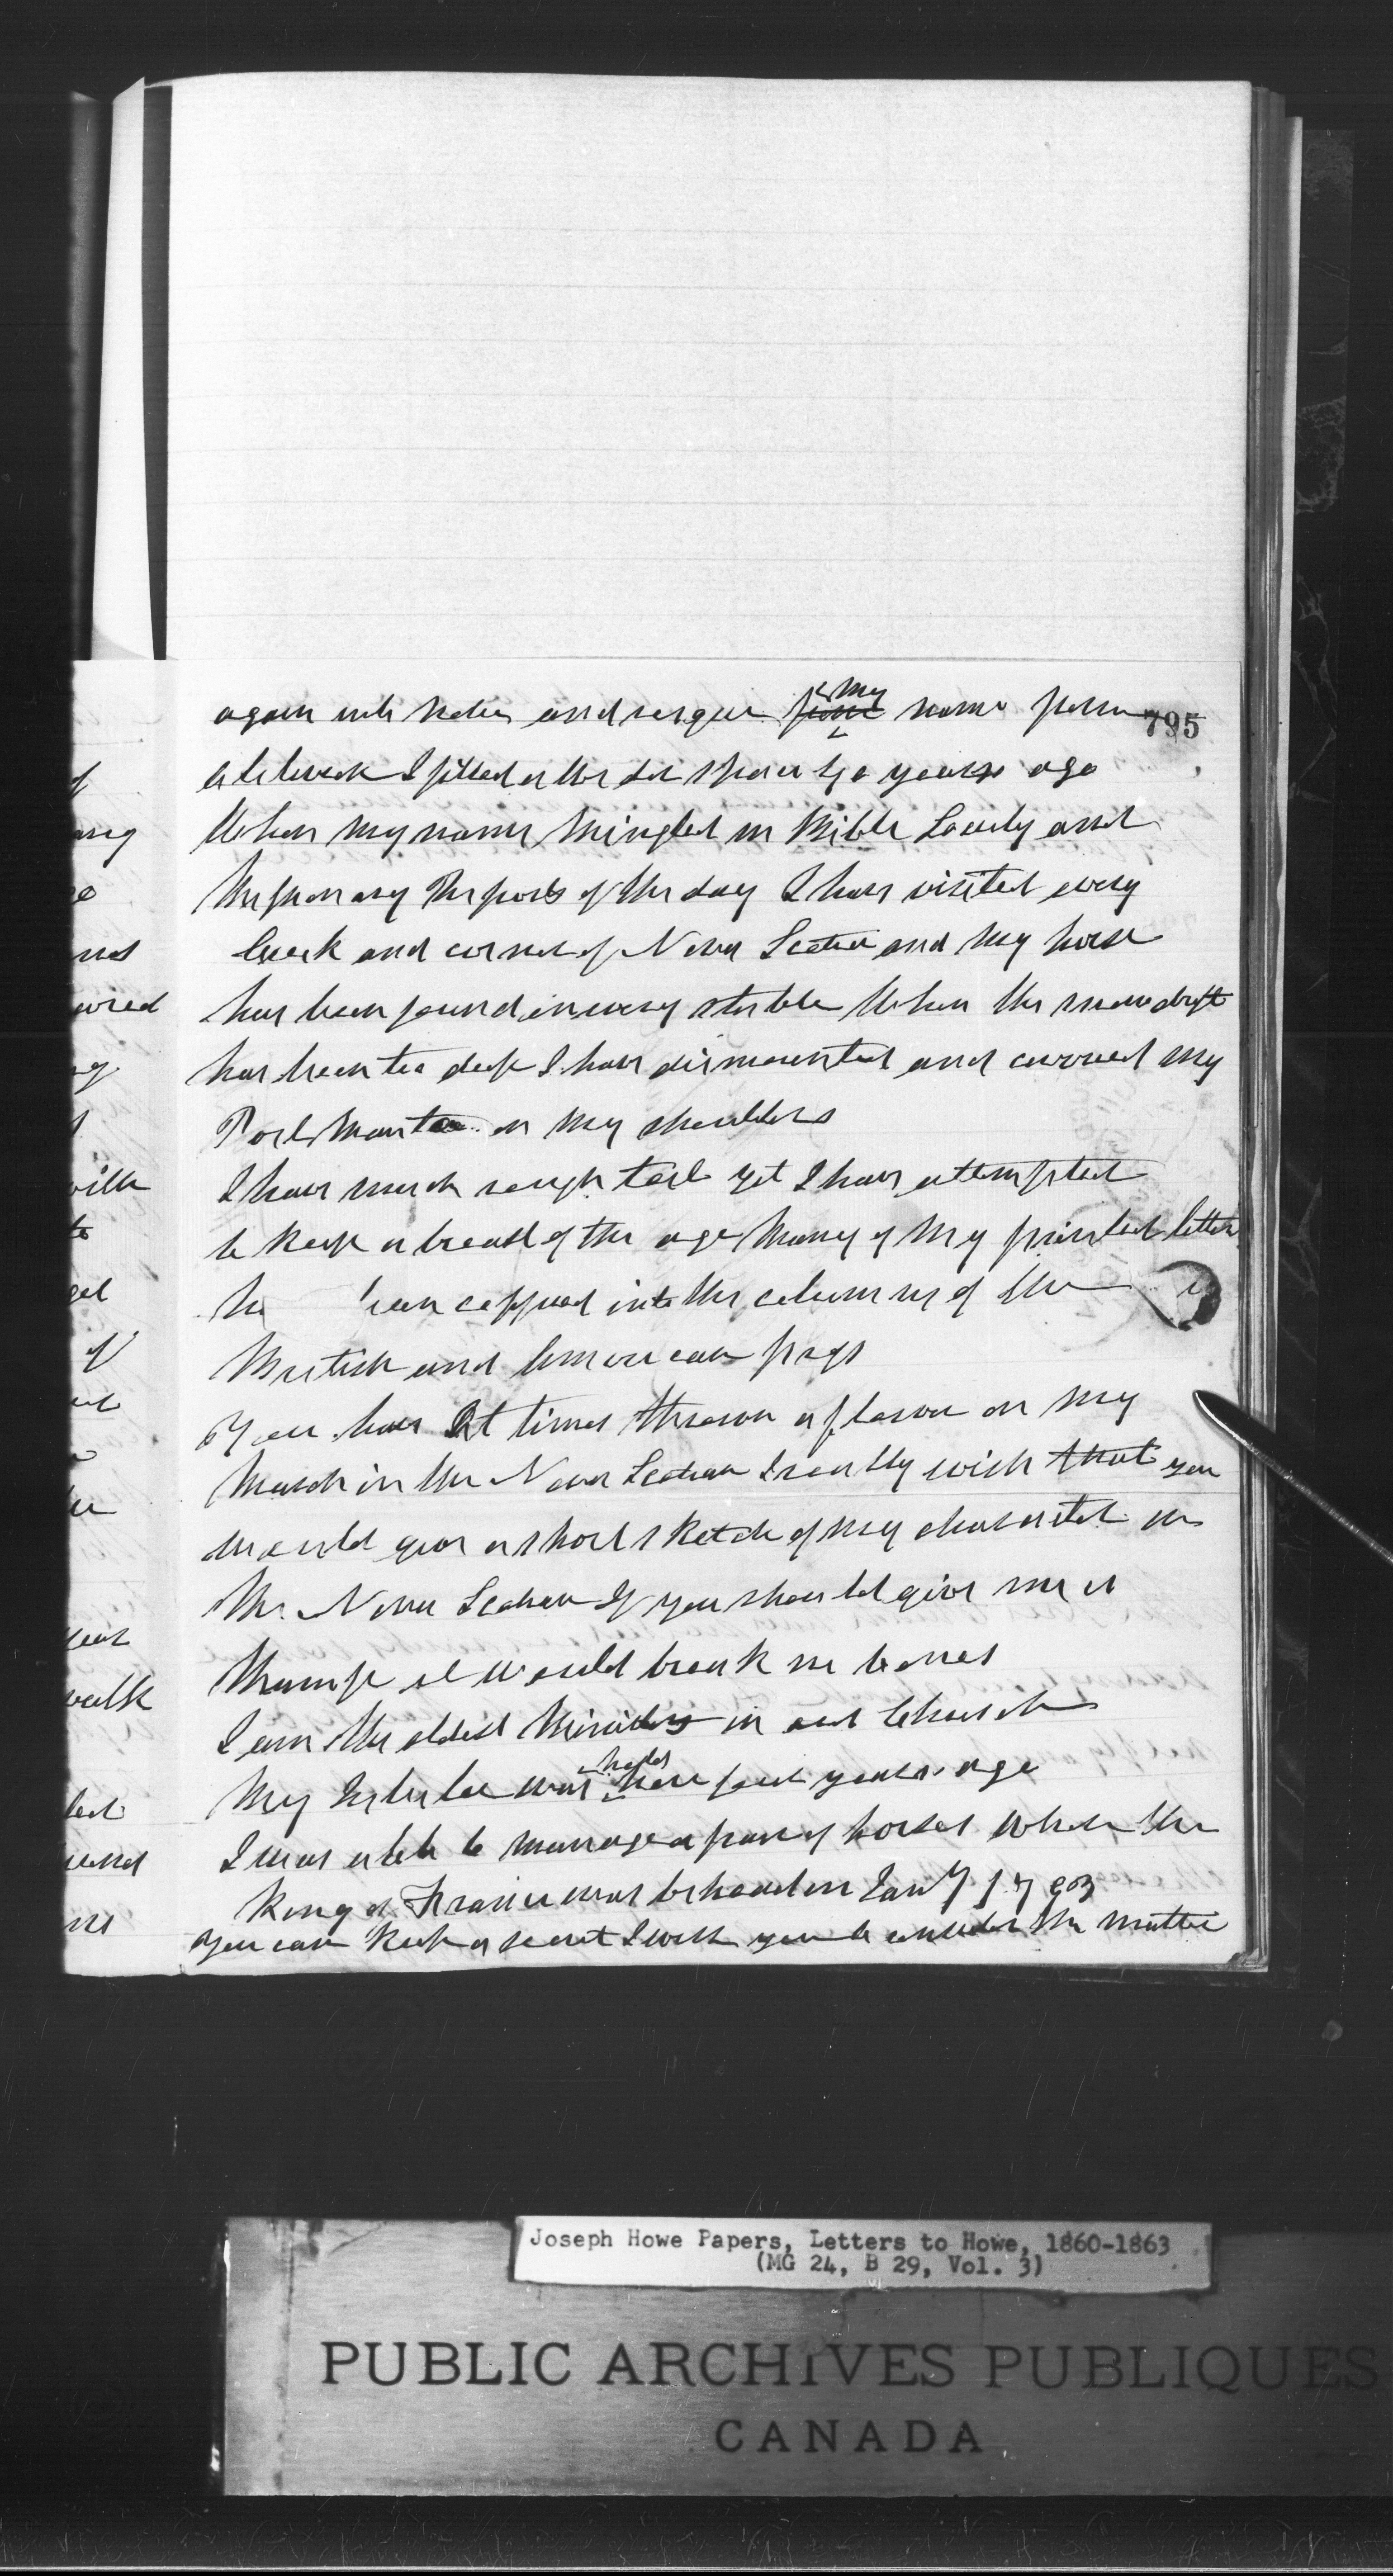 again into notice and rescue my name from
795
a blank I filled a little space years ago
When my name mingled in Bible Society and
Missionary Reports of the day I have visited every
creek and corner of Nova Scotia and my horse
has been found in every stable When the snow drift
has been too deep I have dismounted and carried my
Portmanteau on my shoulders
I have much rough toil yet I have attempted
to keep abreast of the age Many of my printed letters
ha been coppied into the columns of the
British and American press
You have at times thrown a flower on my
March in the Nova Scotian I really wish that you
would give a short sketch of my character in
the Nova Scotian If you should give me a
thump it would break no bones
I am the oldest Minister in our Church
My Jubilee was held here four years ago
I was able to manage a pair of horses when the
King of France was beheaded in Jany 1793
You can keep a secret I wish you to consider the matter
of
any
no
ured
ng
with
to
get
of
year
walk
Joseph Howe Papers, Letters to Howe, 1860-1863
(MG 24, B 29, Vol. 3)
PUBLIC ARCHIVES PUBLIQUES
CANADA